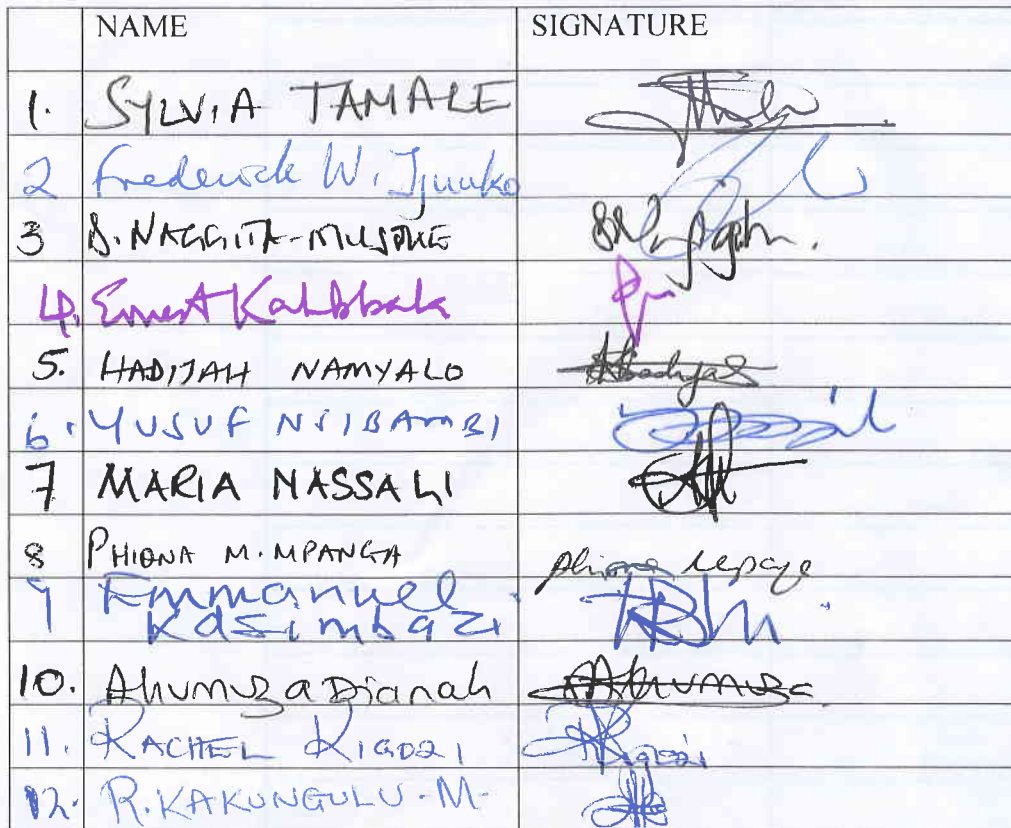 NAME SIGNATURE
1. SYLVIA TAMALE
2 Frederick W. Jjuuko
3 D. NAGGITA-MUSOKE
4. Ernest Kalibbala
5. HADIJAH NAMYALO
6. YUSUF NSIBAMBI
7 MARIA NASSALI
8 PHIONA M. MPANGA
9 Emmanuel
Kasimbazi
10. Ahumuza Dianah Ahumuza
11. RACHEL KIGOZI Kigozi
12. R. KAKUNGULU-M-